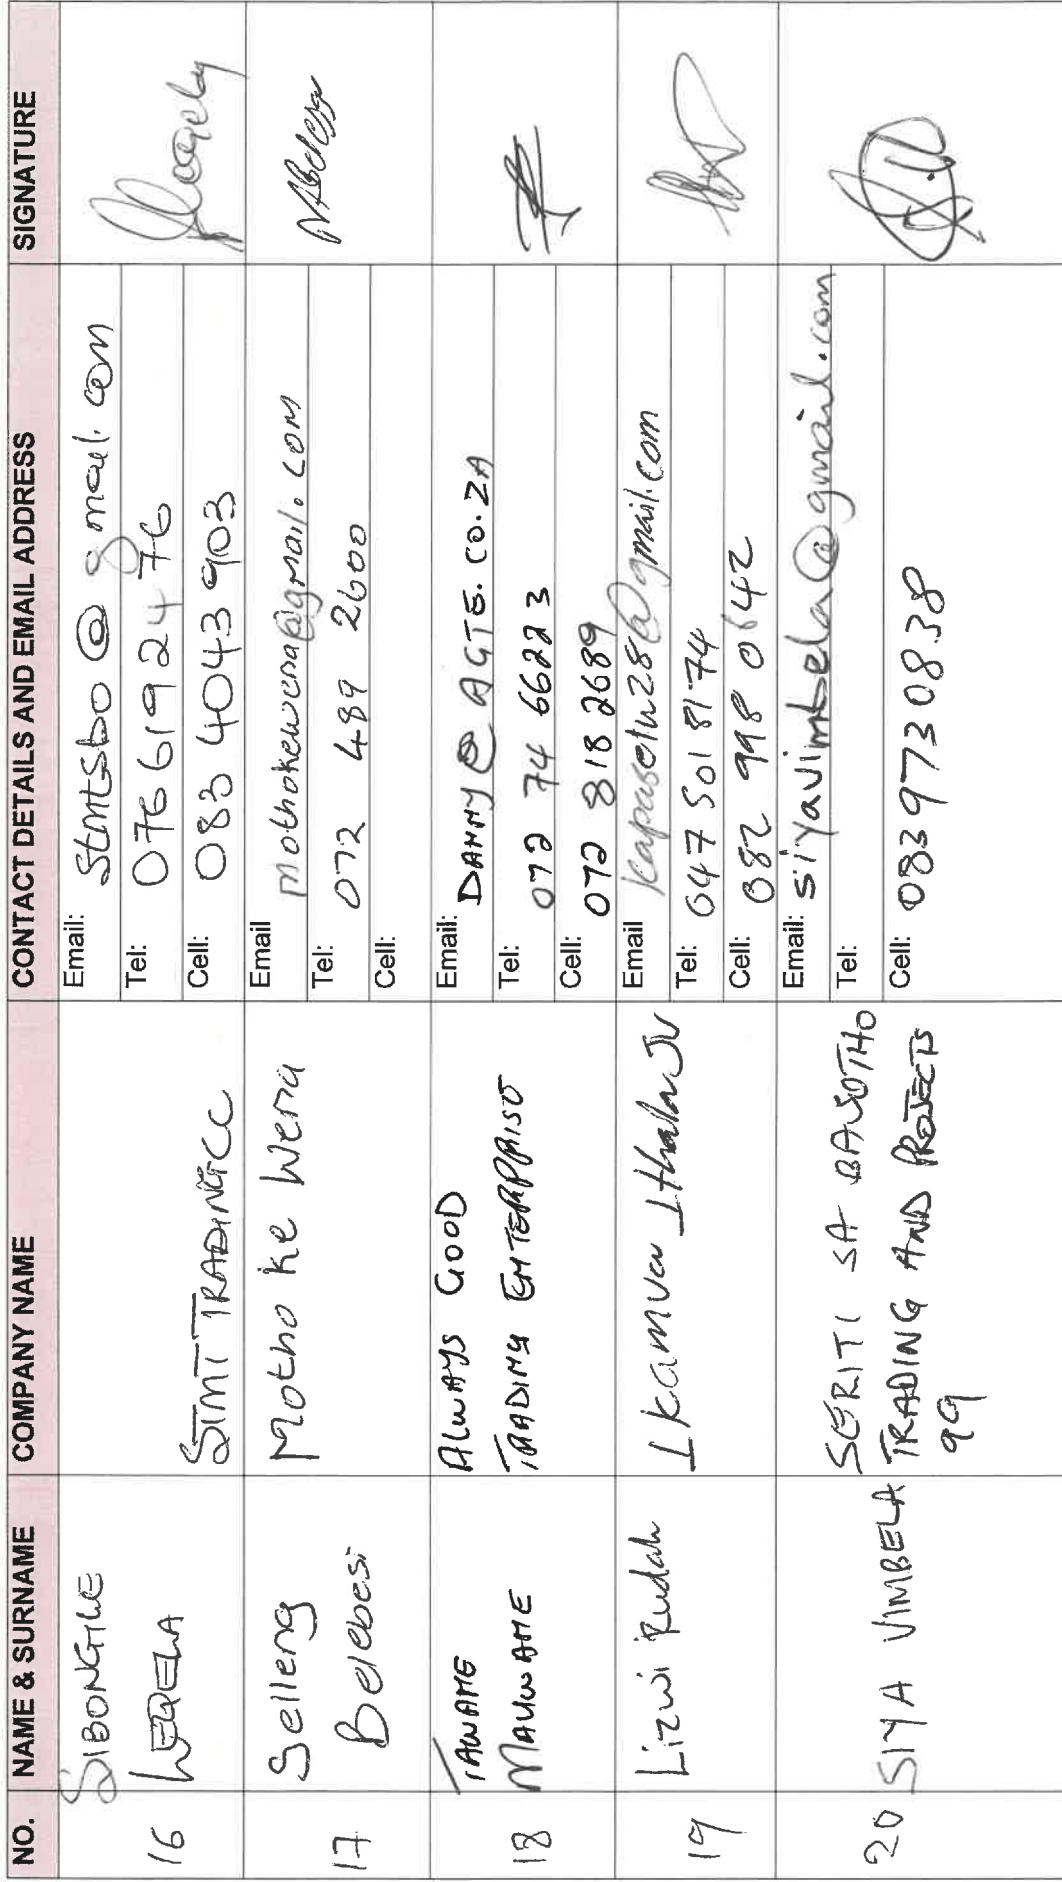 NO. NAME & SURNAME COMPANY NAME CONTACT DETAILS AND EMAIL ADDRESS SIGNATURE
16 SIBONGILE
STMT TRADING CC
Email: Stmtsbo@gmail.com
Tel: 0766192476
Cell: 083 4043903
17 Selleng
Belebesi
Motho ke Wena
Email mothokewena@gmail.com
Tel: 072 489 2600
Cell:
18 TAWANE
MAUWANE
ALWAYS GOOD
TRADING ENTERPRISE
Email: DANNY@AGTE.CO.ZA
Tel: 072 74 66223
Cell: 072 818 2689
19 Lizwi Rudah
Ikamva Ithala JV
Email
Tel: 047 501 8174
Cell: 082 998 0642
20 SIYA VIMBELA
SERITI SA BASOTHO
TRADING AND PROJECTS
99
Email: siyavimbela@gmail.com
Tel:
Cell: 0839730838